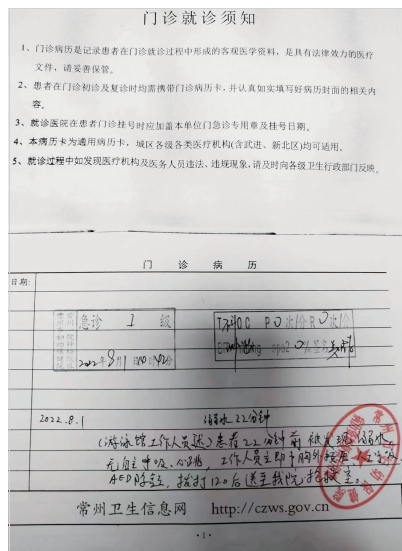 门诊就诊须知
1、门诊病历是记录患者在门诊就诊过程中形成的客观医学资料，是具有法律效力的医疗
文件，请妥善保管。
2、患者在门诊初诊及复诊时均需携带门诊病历卡，并认真如实填写好病历封面的相关内
容。
3、就诊医院在患者门诊挂号时应加盖本单位门急诊专用章及挂号日期。
4、本病历卡为通用病历卡，城区各级各类医疗机构(含武进、新北区)均可适用。
5、就诊过程中如发现医疗机构及医务人员违法、违规现象，请及时向各级卫生行政部门反映。
门 诊 病 历
日期:
急诊 I 级
2022年8月1日
P0次/分R0次/分
2022.8.1
溺水22分钟
(游泳馆工作人员述)患者22分钟前被发现溺水
无自主呼吸、心跳，工作人员立即予胸外按压
AED除颤，拨打120后送至我院抢救室。
常州卫生信息网 http://czws.gov.cn
·1·